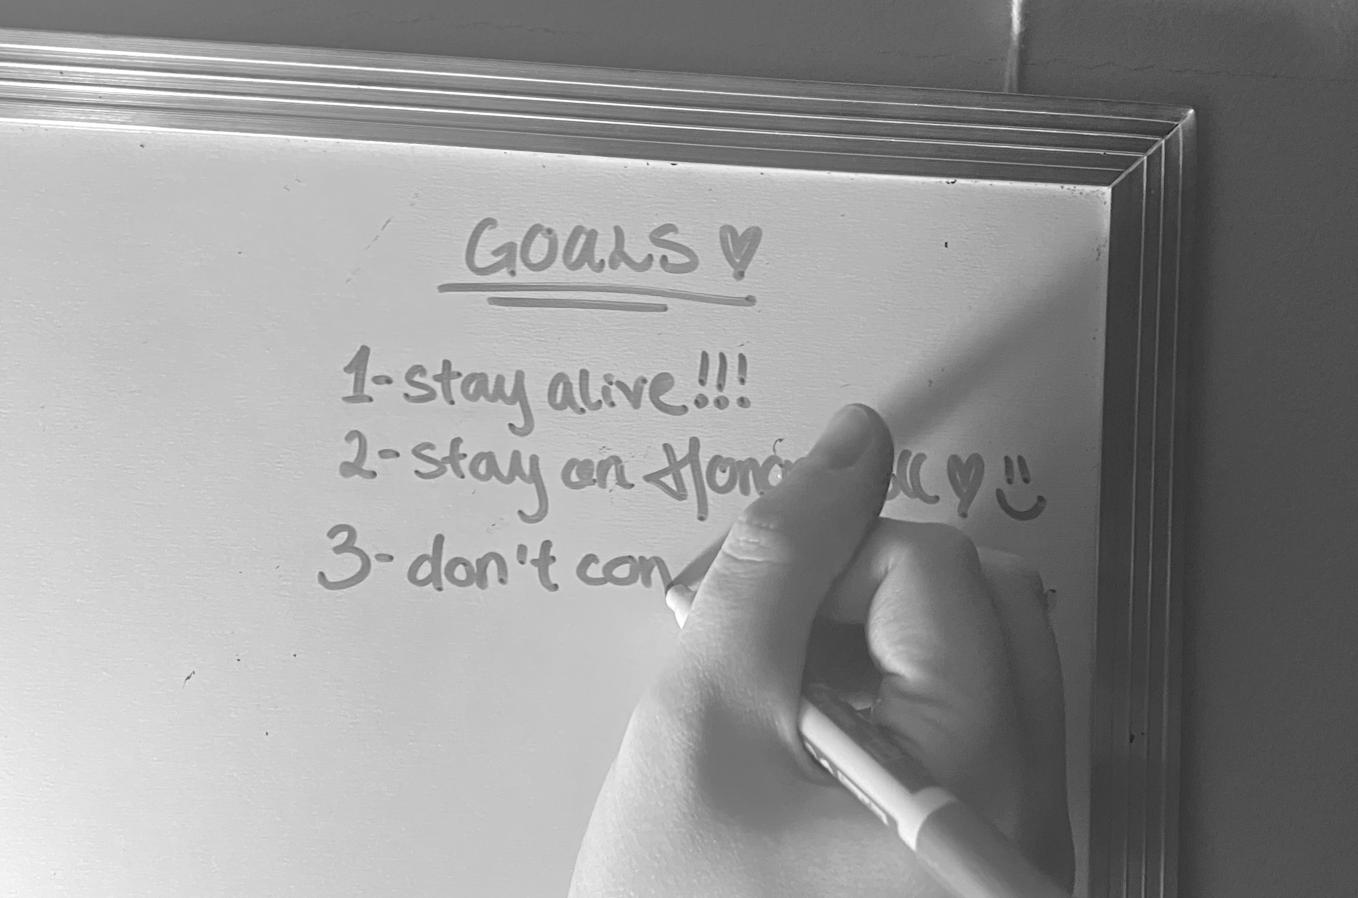 GOALS ♥
1-stay alive!!!
2-stay on ♥
3-don't con